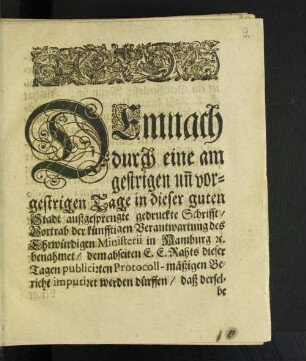 9.
DEmnach
durch eine am
gestrigen uñ vor-
gestrigen Tage in dieser guten
Stadt außgesprengte gedruckte Schrifft/
Vortrab der künfftigen Verantwartung des
Ehrwürdigen Ministerii in Hamburg ꝛc.
benahmet/ dem abseiten E. E. Rahts dieser
Tagen publiciꝛten Protocoll-mäßigen Be-
richt imputiꝛet werden dürffen/ daß dersel-
be